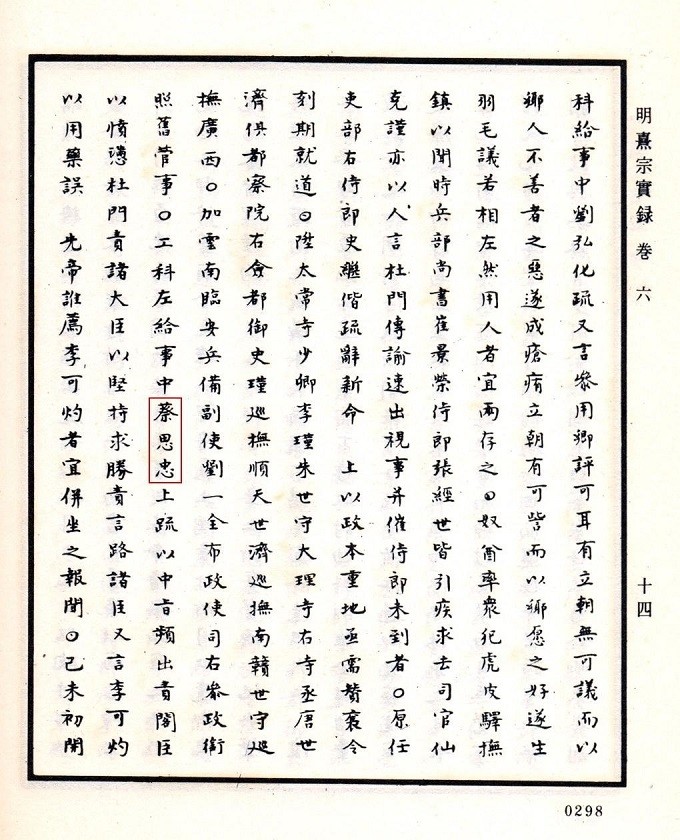 明熹宗實録 卷六 十四
科給事中劉弘化疏又言參用鄉評可耳有立朝無可議而以
鄉人不善者之惡遂成瘡痏立朝有可訾而以鄉愿之好遂生
羽毛議若相左然用人者宜兩存之○奴酋率衆犯虎皮驛撫
鎮以聞時兵部尚書崔景榮侍郎張經世皆引疾求去司官仙
克謹亦以人言杜門傳諭速出視事并催侍郎未到者○原任
吏部右侍郎史繼偕疏辭新命 上以政本重地亟需贊襄令
刻期就道○陞太常寺少卿李瑾朱世守大理寺右寺丞唐世
濟俱都察院右僉都御史瑾巡撫順天世濟巡撫南贛世守巡
撫廣西○加雲南臨安兵備副使劉一全布政使司右參政銜
照舊管事○工科左給事中蔡思忠上疏以中旨頻出責閣臣
以憤懣杜門責諸大臣以堅持求勝責言路諸臣又言李可灼
以用藥誤 先帝誰薦李可灼者宜併坐之報聞○己未初開
0298